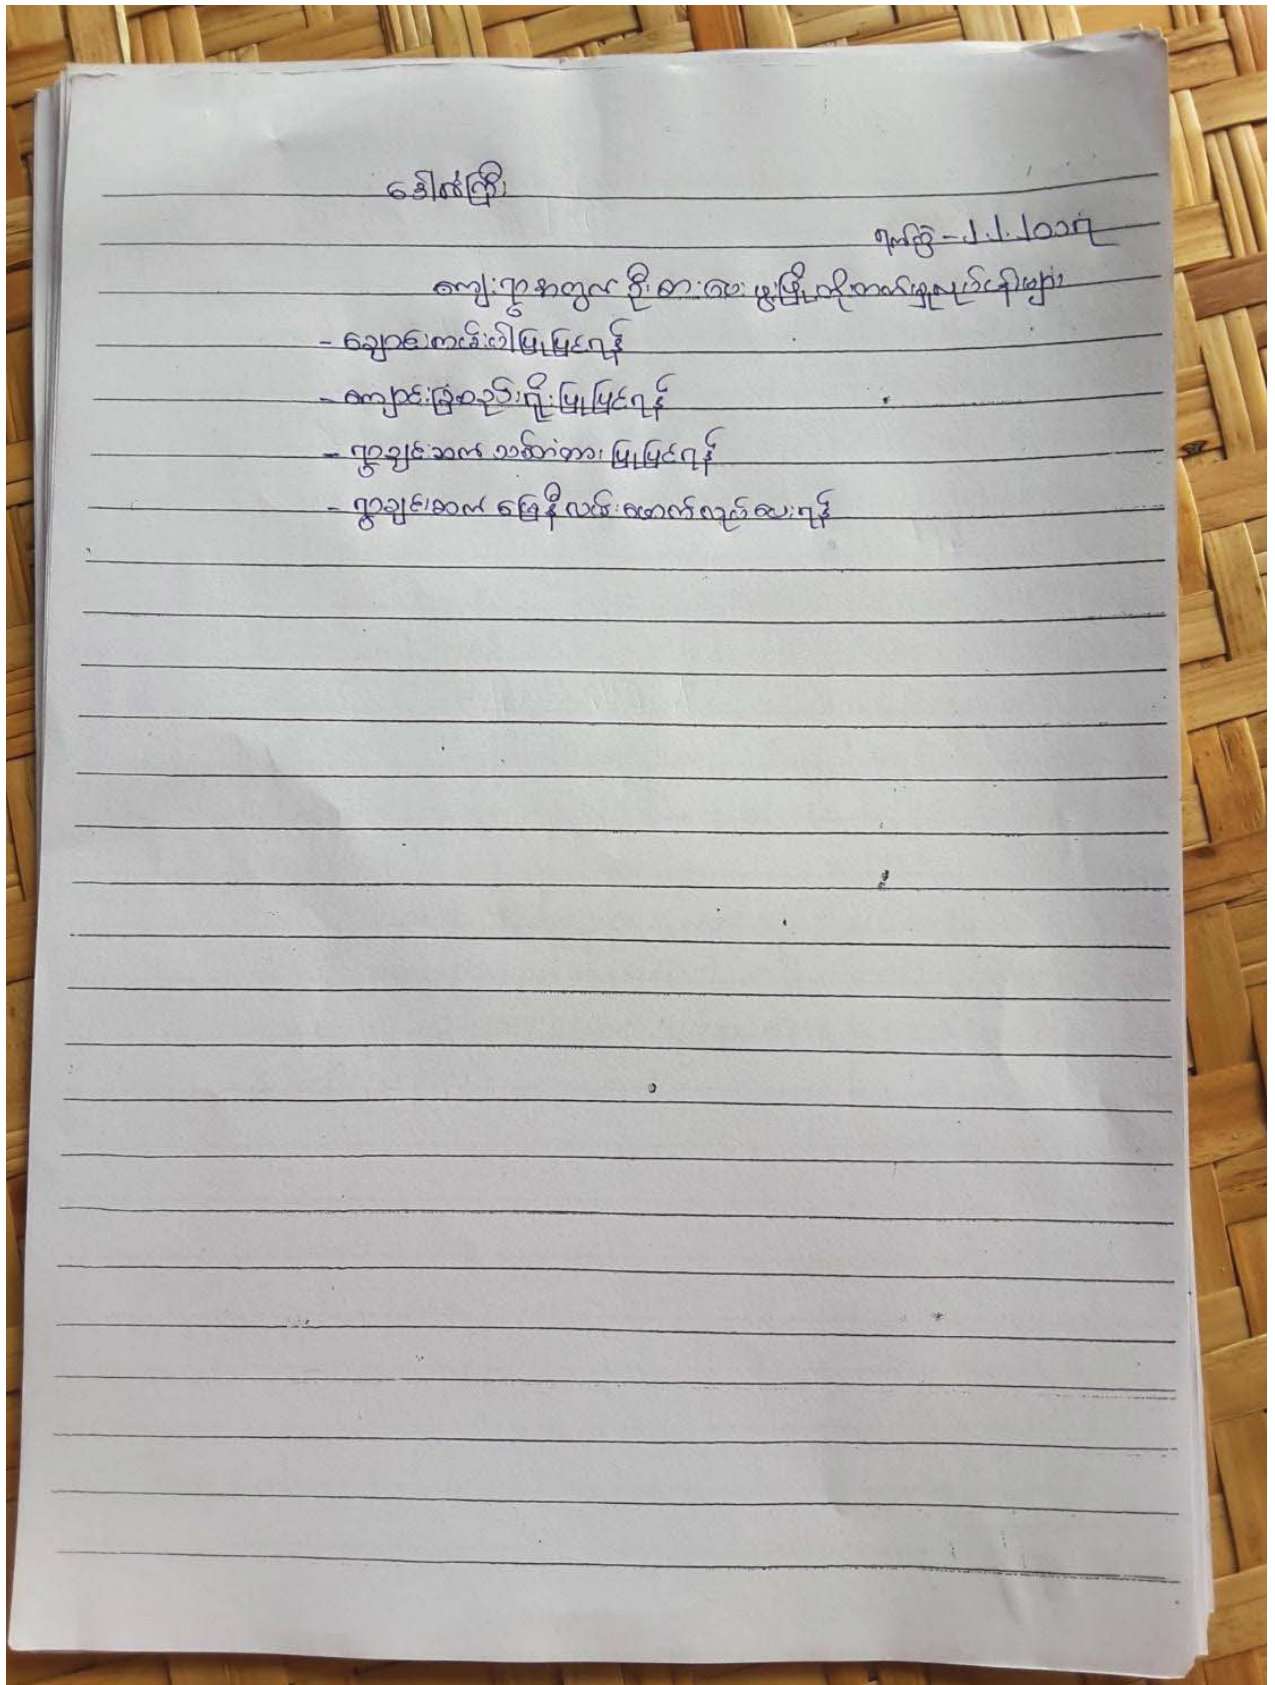 ဒေါတ်ကြီး
ရက်စွဲ - ၂.၂.၂၀၁၇
ကျေးရွာအတွက် ဦးစားပေး ဖွံ့ဖြိုးတိုးတက်မှုလုပ်ငန်းများ
- ချောင်းကမ်းပါးပြုပြင်ရန်
- ကျောင်းခြံစည်းရိုးပြုပြင်ရန်
- ရွာချင်းဆက် သစ်တံတား ပြုပြင်ရန်
- ရွာချင်းဆက် မြေနီလမ်းဖောက်လုပ်ပေးရန်